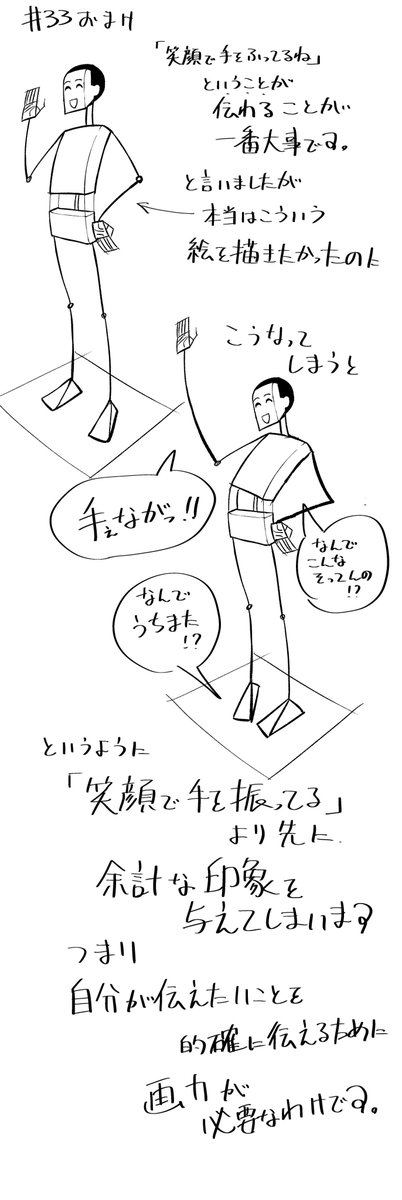 #33おまけ
「笑顔で手をふってるね」
ということが
伝わることが
一番大事です。
と言いましたが
本当はこういう
絵を描きたかったのに
こうなって
しまうと
手ぇながっ!!
なんで
こんな
そってんの
!?
なんで
うちまた
!?
というように
「笑顔で手を振ってる」
より先に
余計な印象を
与えてしまいます
つまり
自分が伝えたいことを
的確に伝えるために
画力が
必要なわけです。